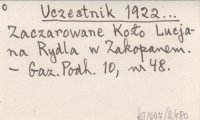 Uczestnik 1922...
Zaczarowane Koło Lucja-
na Rydla w Zakopanem.
– Gaz. Podh. 10, nr 48.